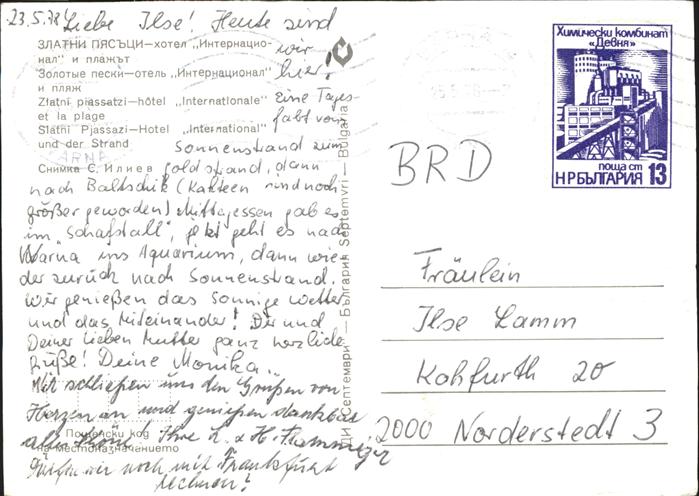 23.5.78 Liebe Ilse! Heute sind
wir
hier!
Eine Tages-
fahrt vom
Sonnenstrand zum
Goldstrand, dann
nach Baltschik (Kakteen sind noch
größer geworden) Mittagessen gab es
im „Schafstall", jetzt geht es nach
Warna ins Aquarium, dann wie-
der zurück nach Sonnenstrand.
Wir genießen das sonnige Wetter
und das Miteinander! Dir und
Deiner lieben Mutter ganz herzliche
Grüße! Deine Monika.
Wir schließen uns den Grüßen von
Herzen an und genießen dankbar
alles Schöne! Ihre L. u. H.
Dürfen wir noch mit Frankfurt
rechnen?
ЗЛАТНИ ПЯСЪЦИ—хотел „Интернацио-
нал" и плажът
Золотые пески—отель „Интернационал"
и пляж
Zlatni piassatzi—hôtel „Internationale"
et la plage
Slatni Pjassazi—Hotel „International"
und der Strand
Снимка С. Илиев
ДП „Септември" — България Septemvri — Bulgaria
Пощенски код
на местоназначението
VARNA
Химически комбинат
«Девня»
поща ст
НР БЪЛГАРИЯ 13
BRD
Fräulein
Ilse Lamm
Kohfurth 20
2000 Norderstedt 3